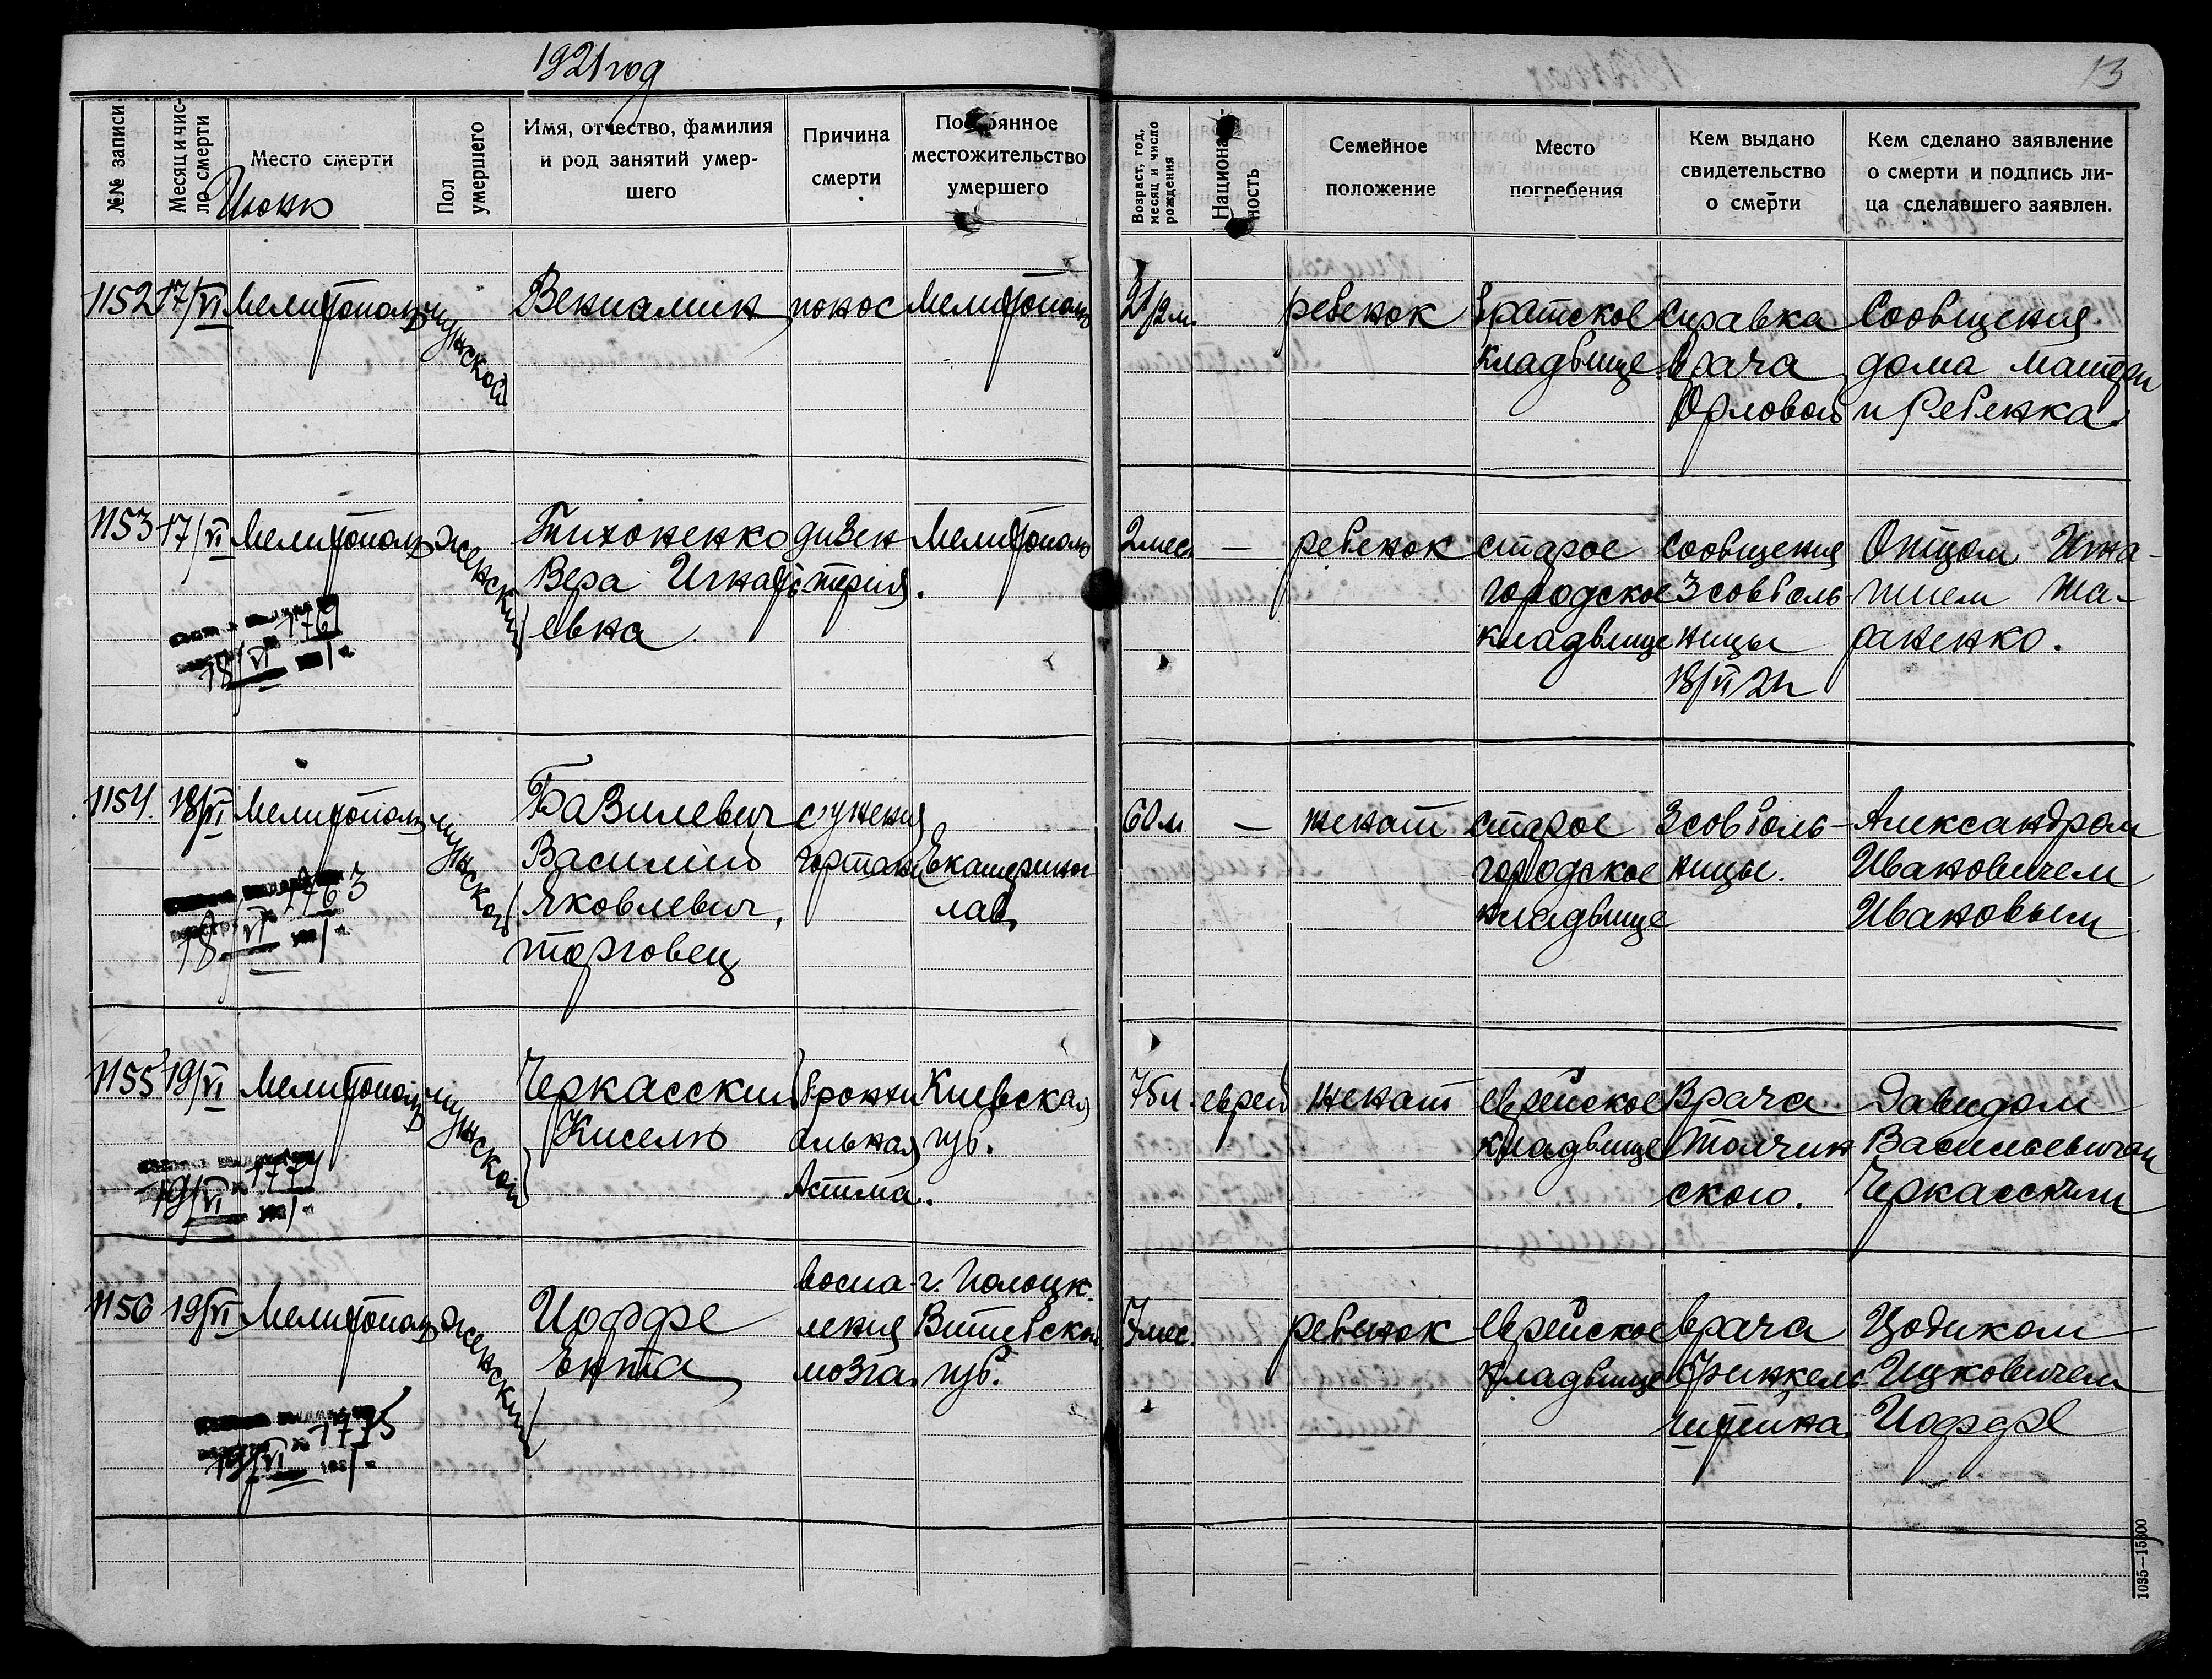 1921 год
13
№№ записи
Месяц и чис-
ло смерти
Место смерти
Июнь
Пол
умершего
Имя, отчество, фамилия
и род занятий умер-
шего
Причина
смерти
Постоянное
местожительство
умершего
Возраст, год,
месяц и число
рождения
Националь-
ность
Семейное
положение
Место
погребения
Кем выдано
свидетельство
о смерти
Кем сделано заявление
о смерти и подпись ли-
ца сделавшего заявлен.
1152
17/VI
Мелитополь
мужской
Вениамин
понос
Мелитополь
2 1/2 м.
ребенок
братское
кладбище
Справка
врача
Орловой
Сообщения
дома матери
и ребенка.
1153
17/VI
Мелитополь
1761
18/VI
женский
Тихоненко
Вера Игнать
евна
дизен
терия.
Мелитополь
2 мес.
—
ребенок
старое
городское
кладбище
сообщения
3 совболь
ницы
18/VI 21г
Отцом Игна-
тием
1154.
18/VI
Мелитополь
1763
18/VI
мужской
Базилевич
Василий
Яковлевич,
торговец
сужения
гортани
Екатеринос
лав
60 л
—
женат
старое
городское
кладбище
3 совболь-
ницы.
Александром
Ивановичем
Ивановым
1155
19/VI
Мелитополь
1774
19/VI
мужской
Черкасский
Кисель
бронхи
альная
Астма.
Киевская
губ.
75 л.
еврей
женат
еврейское
кладбище
Врача
Толчин
ского.
Давидом
Васильевичем
Черкасским
1156
19/VI
Мелитополь
1775
19/VI
женский
Иоффе
Ента
воспа-
ления
мозга.
г. Полоцк.
Витебская
губ.
7 мес.
ребенок
еврейское
кладбище
врача
Финкель
штейна.
Цодиком
Ицковичем
Иоффе
1035—15800